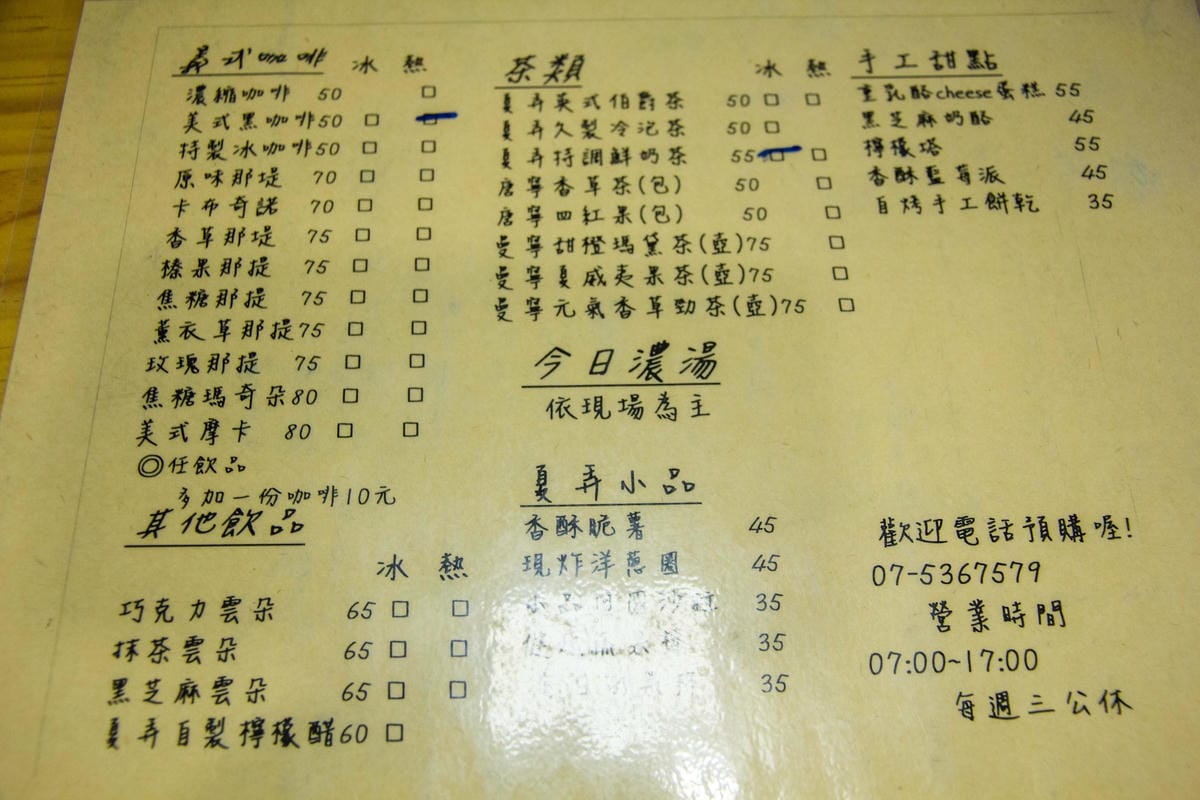 義式咖啡 冰 熱
濃縮咖啡 50 □
美式黑咖啡50 □ □
特製冰咖啡50 □ □
原味那堤 70 □ □
卡布奇諾 70 □ □
香草那堤 75 □ □
榛果那提 75 □ □
焦糖那提 75 □ □
薰衣草那提75 □ □
玫瑰那提 75 □ □
焦糖瑪奇朵80 □ □
美式摩卡 80 □ □
◎任飲品
多加一份咖啡10元
其他飲品
冰 熱
巧克力雲朵 65 □ □
抹茶雲朵 65 □ □
黑芝麻雲朵 65 □ □
夏弄自製檸檬醋60 □
茶類 冰 熱
夏弄英式伯爵茶 50 □ □
夏弄久製冷泡茶 50 □
夏弄特調鮮奶茶 55 □ □
唐寧香草茶(包) 50 □
唐寧四紅果(包) 50 □
曼寧甜橙瑪黛茶(壺)75 □
曼寧夏威夷果茶(壺)75 □
曼寧元氣香草勁茶(壺)75 □
今日濃湯
依現場為主
夏弄小品
香酥脆薯 45
現炸洋蔥圈 45
35
35
35
手工甜點
重乳酪cheese蛋糕 55
黑芝麻奶酪 45
檸檬塔 55
香酥藍莓派 45
自烤手工餅乾 35
歡迎電話預購喔!
07-5367579
營業時間
07:00~17:00
每週三公休